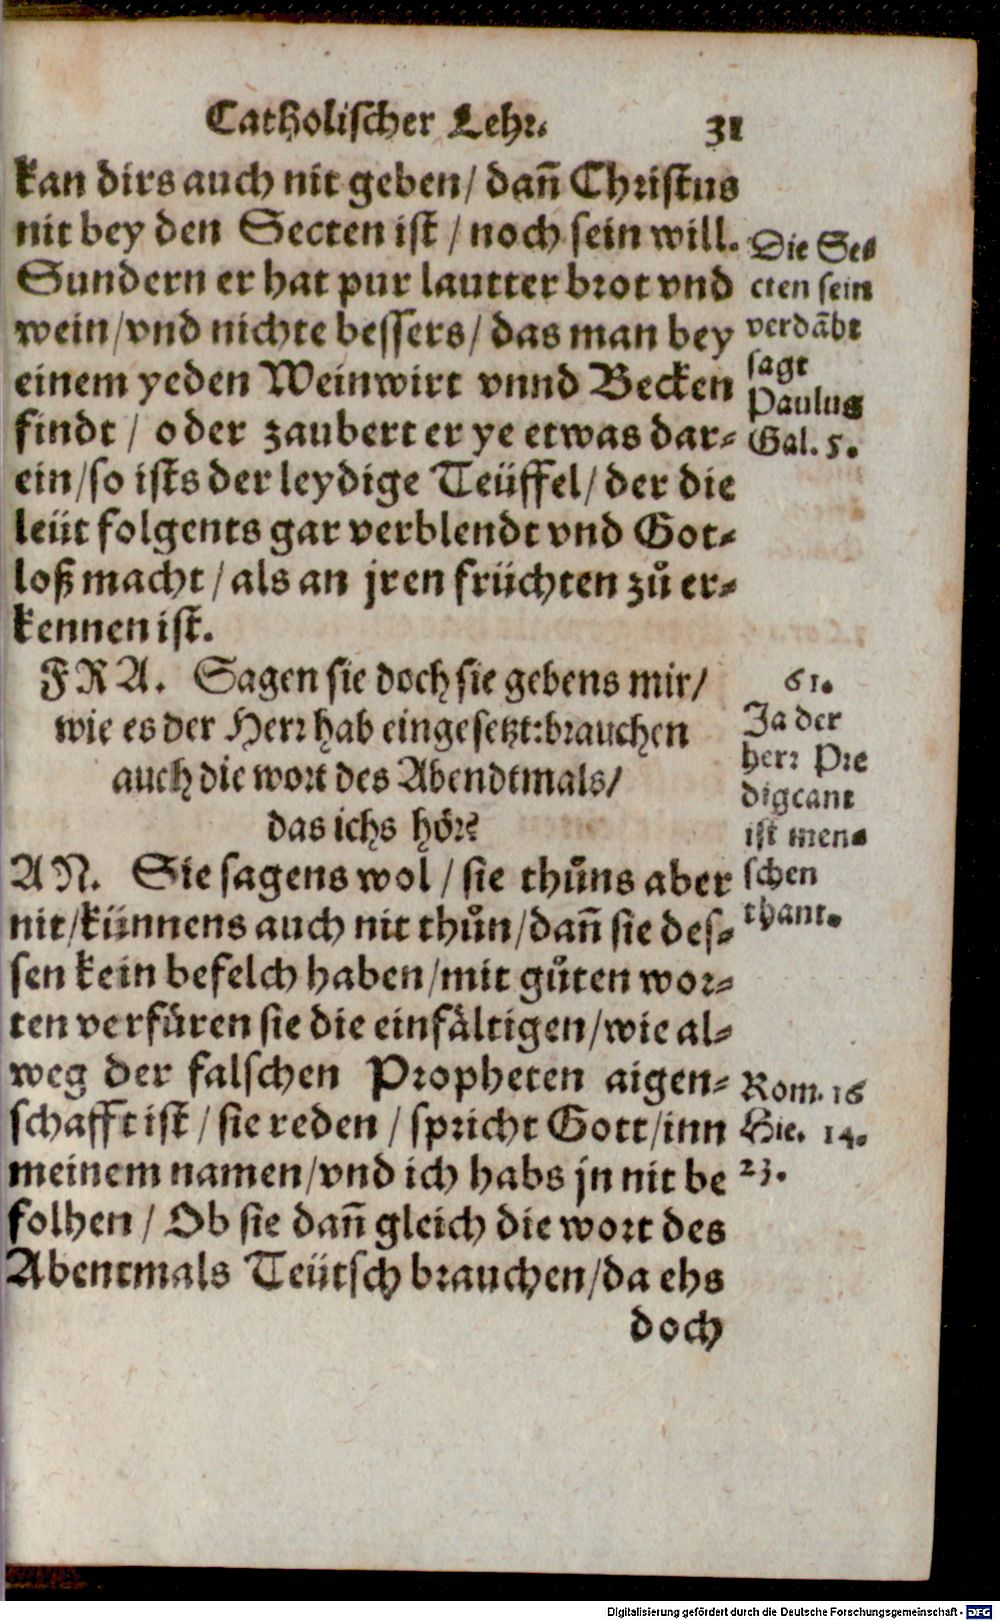 Catholischer Lehr. 31
kan dirs auch nit geben/ dañ Christus
nit bey den Secten ist / noch sein will.
Sundern er hat pur lautter brot vnd
wein/vnd nichte bessers/ das man bey
einem yeden Weinwirt vnnd Becken
findt / oder zaubert er ye etwas dar-
ein/so ists der leydige Teüffel/ der die
leüt folgents gar verblendt vnd Got-
loß macht / als an jren früchten zů er-
kennen ist.
Die Se-
cten sein
verdãbt
sagt
Paulus
Gal. 5.
FRA. Sagen sie doch sie gebens mir/
wie es der Herr hab eingesetzt: brauchen
auch die wort des Abendtmals/
das ichs hör?
AN. Sie sagens wol / sie thůns aber
nit/künnens auch nit thůn/dañ sie des-
sen kein befelch haben/mit gůten wor-
ten verfüren sie die einfältigen/wie al-
weg der falschen Propheten aigen-
schafft ist / sie reden / spricht Gott/inn
meinem namen/vnd ich habs jn nit be
folhen / Ob sie dañ gleich die wort des
Abentmals Teütsch brauchen/da ehs
doch
61.
Ja der
herr Pre
digcant
ist men-
schen
thant.
Rom. 16
Hie. 14.
23.
Digitalisierung gefördert durch die Deutsche Forschungsgemeinschaft - DFG